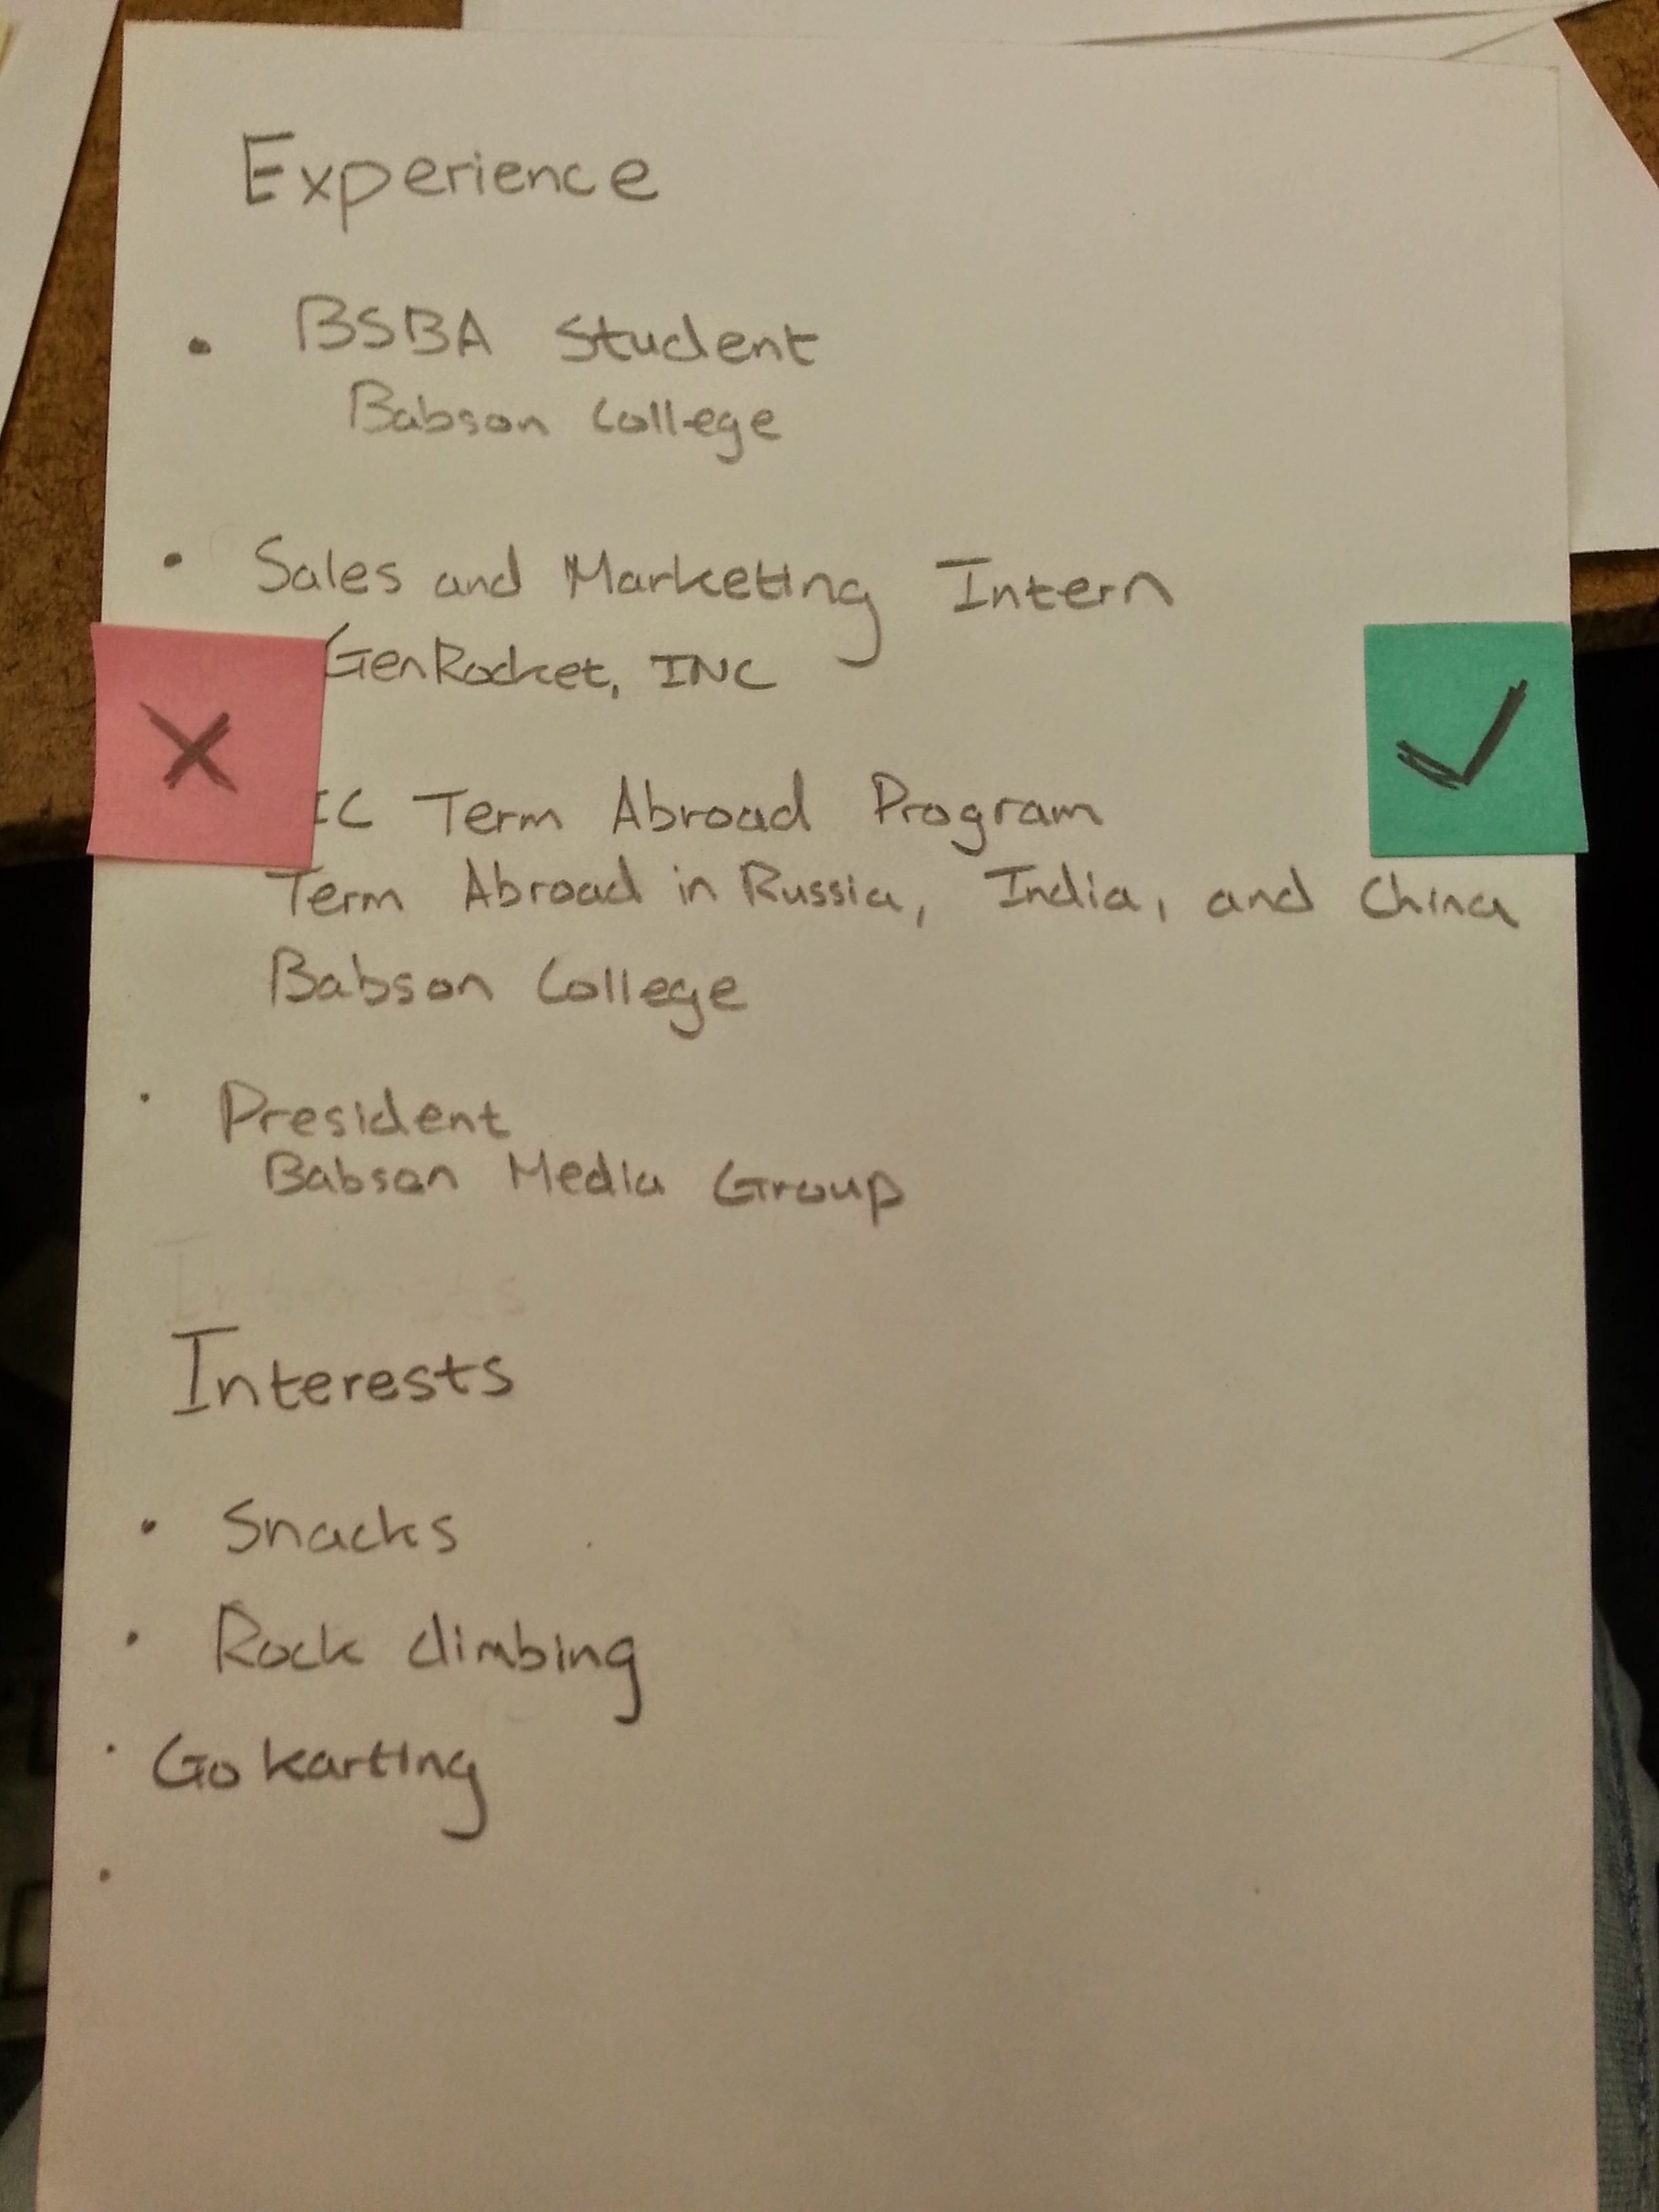 Experience
• BSBA Student
Babson College
• Sales and Marketing Intern
GenRocket, INC
IC Term Abroad Program
Term Abroad in Russia, India, and China
Babson College
• President
Babson Media Group
Interests
• Snacks
• Rock climbing
• Go karting
•